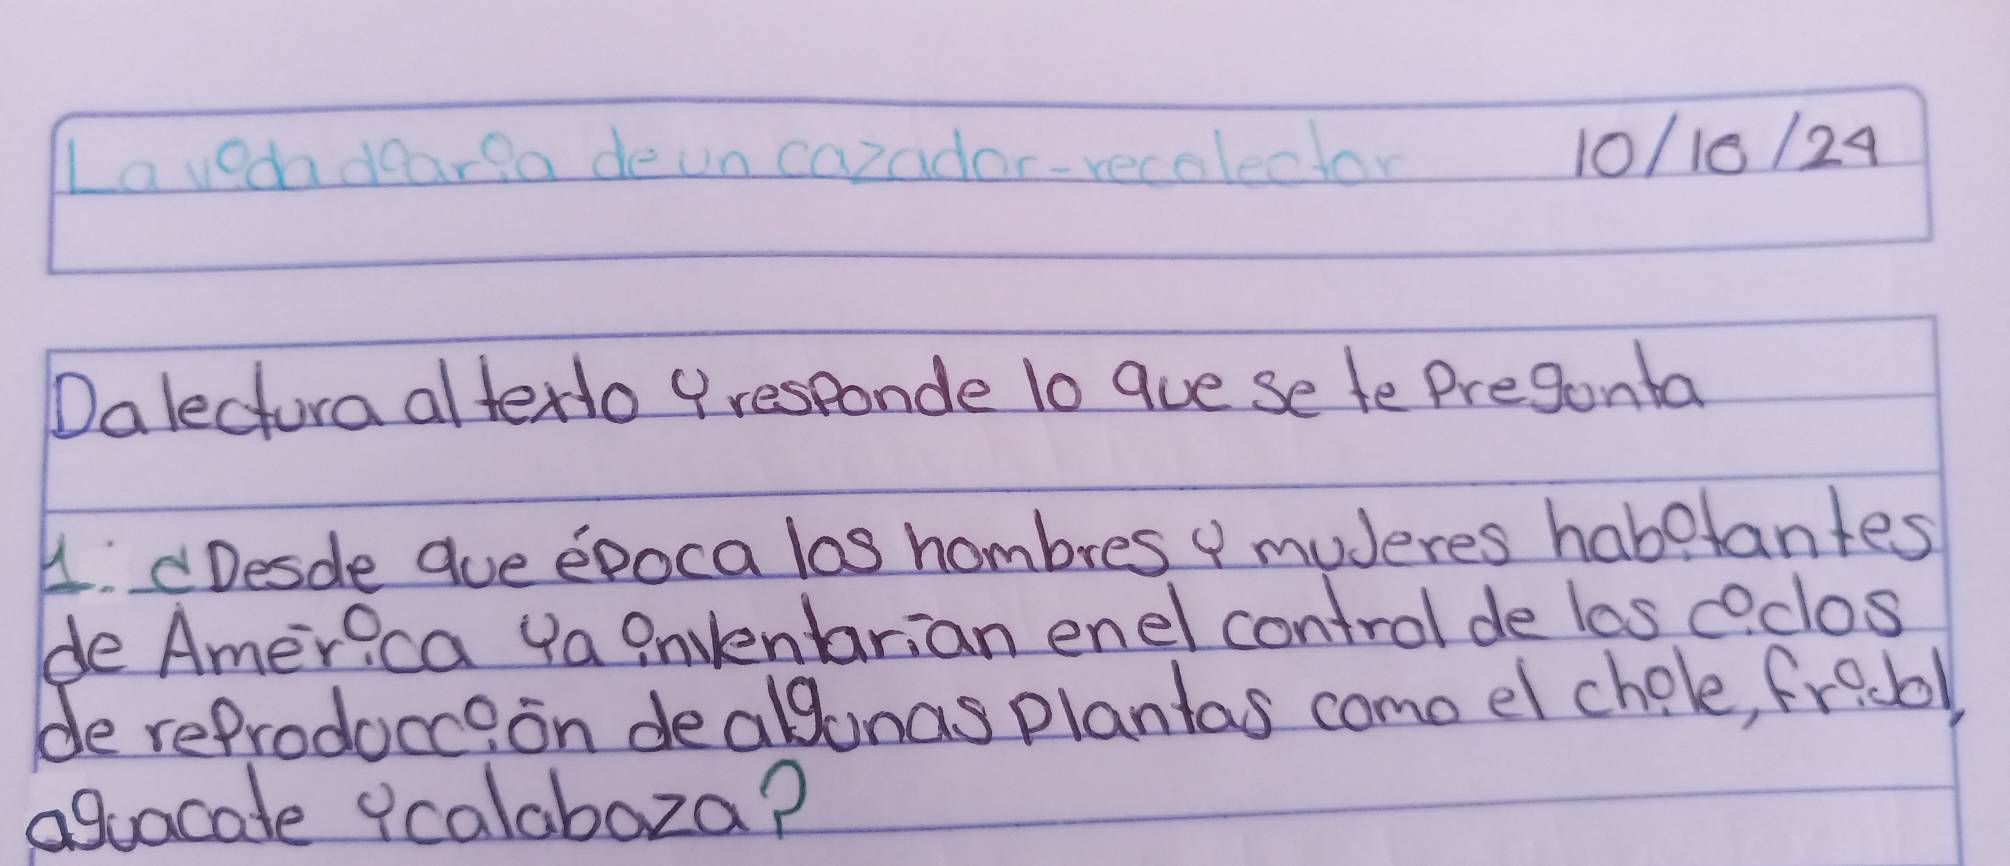 La vida diaria de un cazador-recolector 10/10/24
Da lectura al texto y responde lo que se te Pregunta
1. ¿Desde que época los hombres y mujeres habitantes
de América ya inventarian en el control de los ciclos
de reproducción de algunas plantas como el chile, frijol,
aguacate y calabaza?